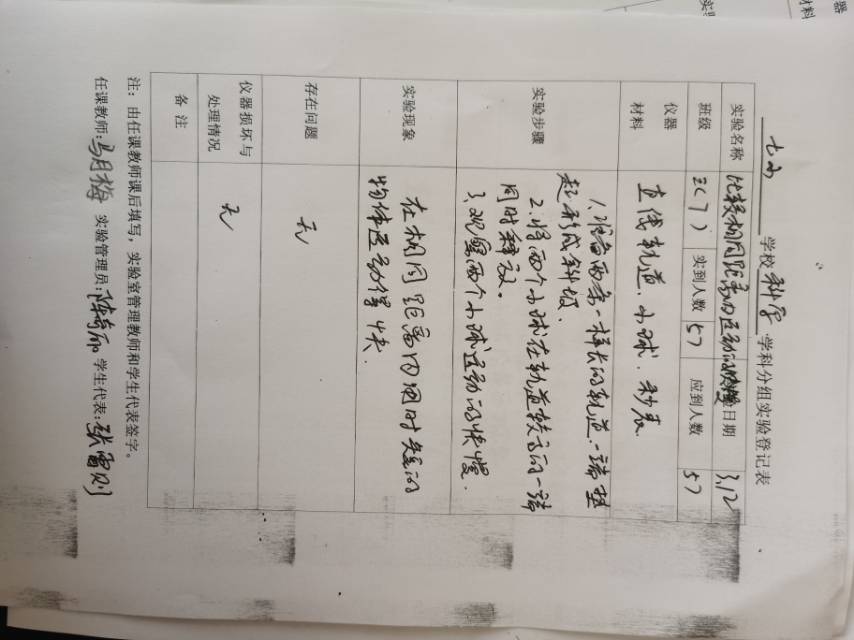 七小 学校 科学 学科分组实验登记表
实验名称 比较相同距离内运动的快慢 日期 3.12
班级 三(7) 实到人数 57 应到人数 57
仪器
材料
直线轨道、小球、秒表
实验步骤
1.准备两条一样长的轨道,一端垫
起形成斜坡.
2.将两个小球在轨道较高的一端
同时释放.
3.观察两个小球运动的快慢.
实验现象
在相同距离内用时短的
物体运动得快.
存在问题
无
仪器损坏与
处理情况
无
备注
注:由任课教师课后填写,实验室管理教师和学生代表签字。
任课教师:马月梅 实验管理员:陈 学生代表:张
器
材料
实